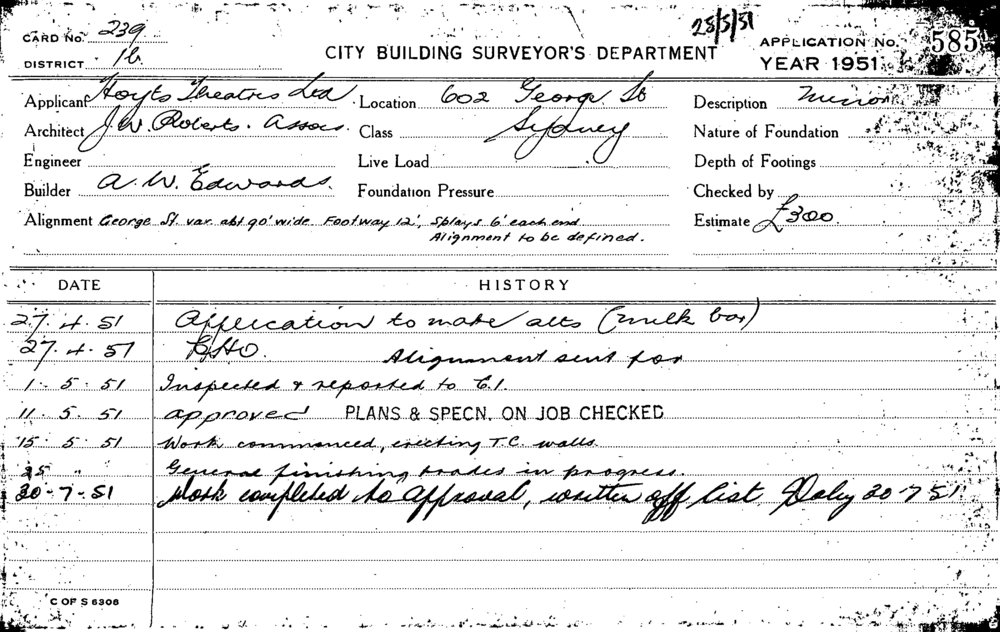 25/5/51
CARD No. 239
CITY BUILDING SURVEYOR'S DEPARTMENT
APPLICATION No. 585
DISTRICT 16
YEAR 1951
Applicant Hoyts Theatres Ltd Location 602 George St Description Minor
Architect J.W. Roberts. Assocs. Class Sydney Nature of Foundation
Engineer Live Load Depth of Footings
Builder A. W. Edwards. Foundation Pressure Checked by
Alignment George St. var. abt 90' wide. Footway 12', Splays 6' each end Estimate £300.
Alignment to be defined.
DATE HISTORY
27. 4. 51 Application to make alts (milk bar)
27. 4. 51 Alignment sent for
1. 5. 51 Inspected & reported to C.I.
11. 5. 51 approved PLANS & SPECN. ON JOB CHECKED
15 5 51 Work commenced, erecting T.C. walls.
25 " General finishing trades in progress.
30-7-51 Work completed to approval, written off list. Daley 30-7 51
C OF S 6306